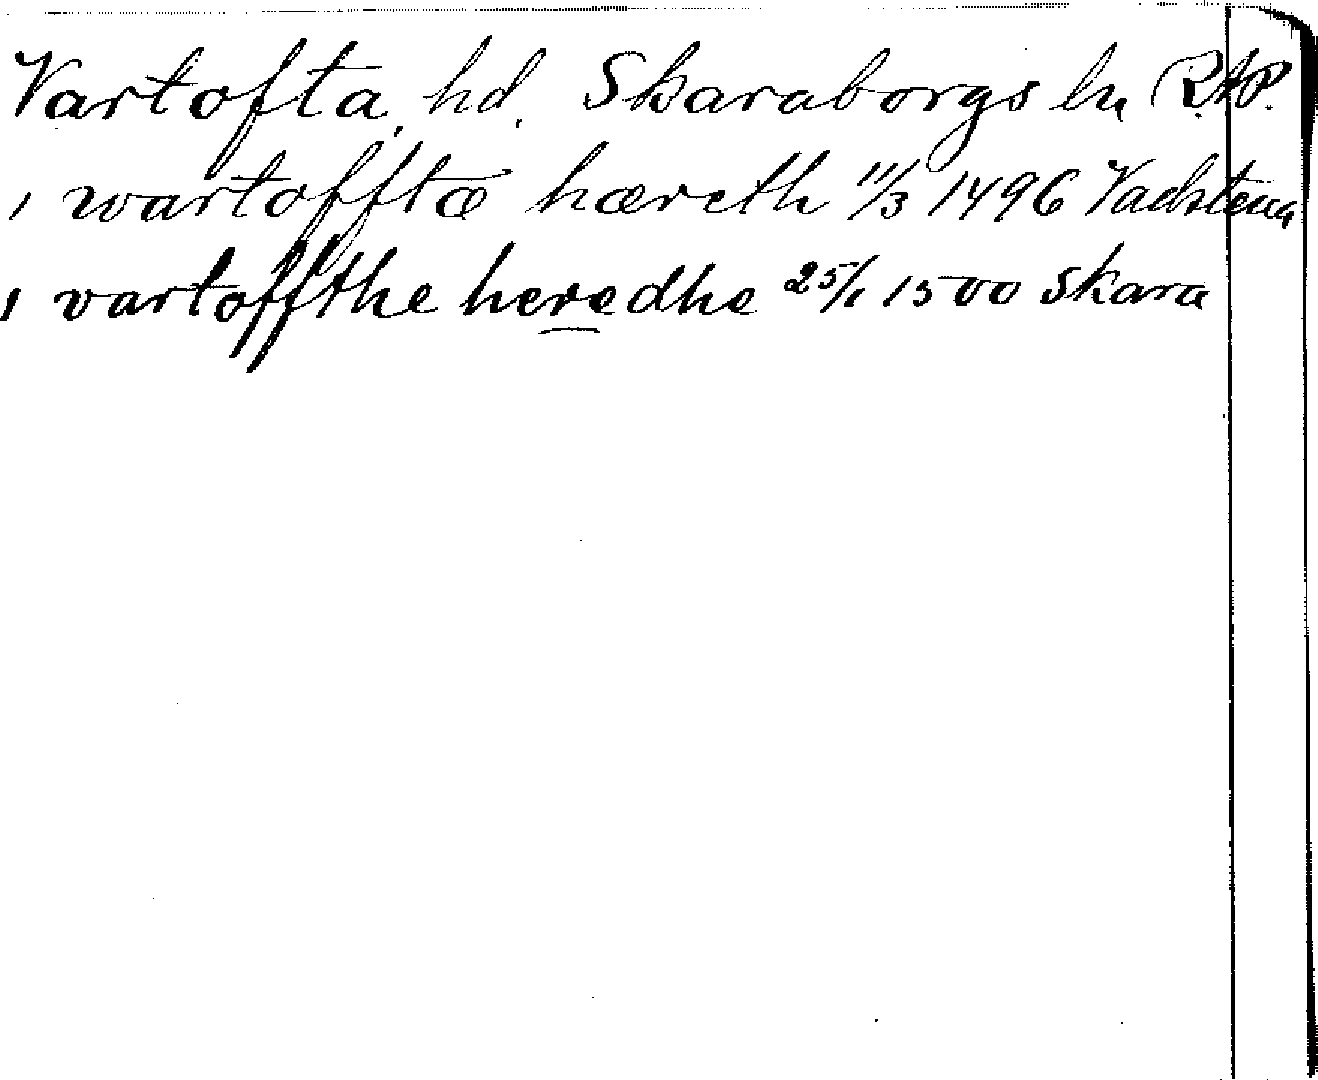 Vartofta, hd, Skaraborgs ln R.A.P.
, wartofftæ hæreth 11/3 1496 Vadstena
, vartoffthe heredhe 25/1 1500 Skara